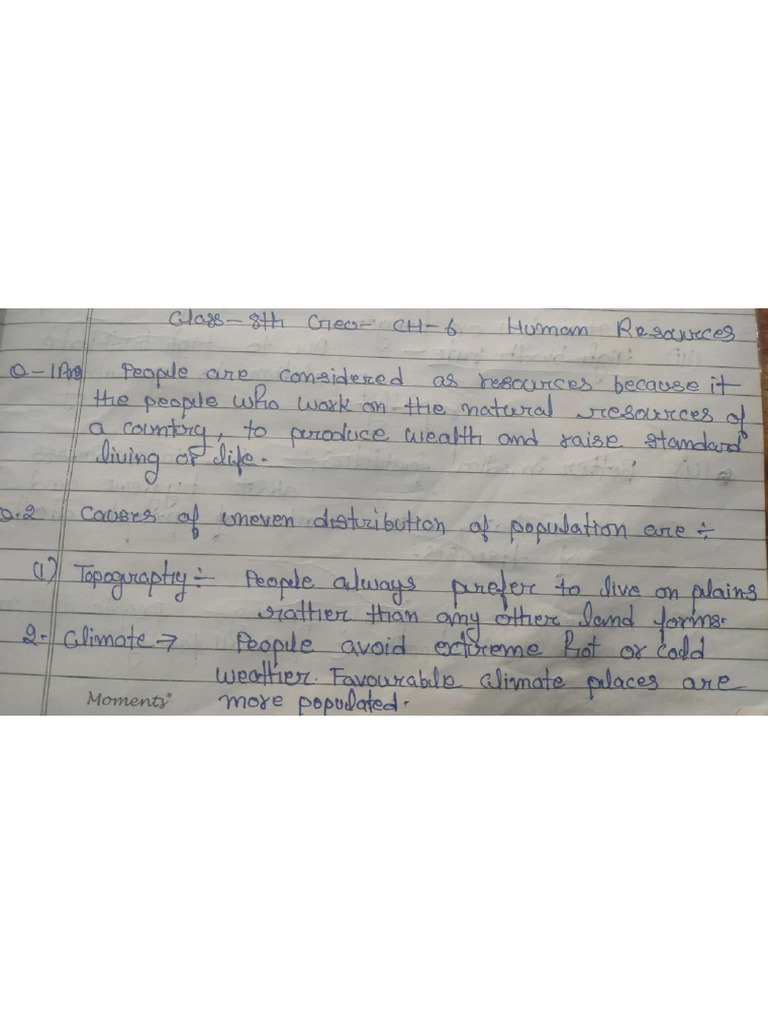 Class - 8th Geo - CH-6 Human Resources
Q-1 Ans People are considered as resources because it
the people who work on the natural resources of
a country, to produce wealth and raise standard
living of life.
Q.2 Causes of uneven distribution of population are ÷
(1) Topography ÷ People always prefer to live on plains
rather than any other land forms.
2. Climate → People avoid extreme hot or cold
weather. Favourable climate places are
more populated.
Moments